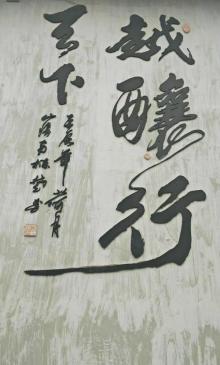 越釀行
天下
壬辰年荷月